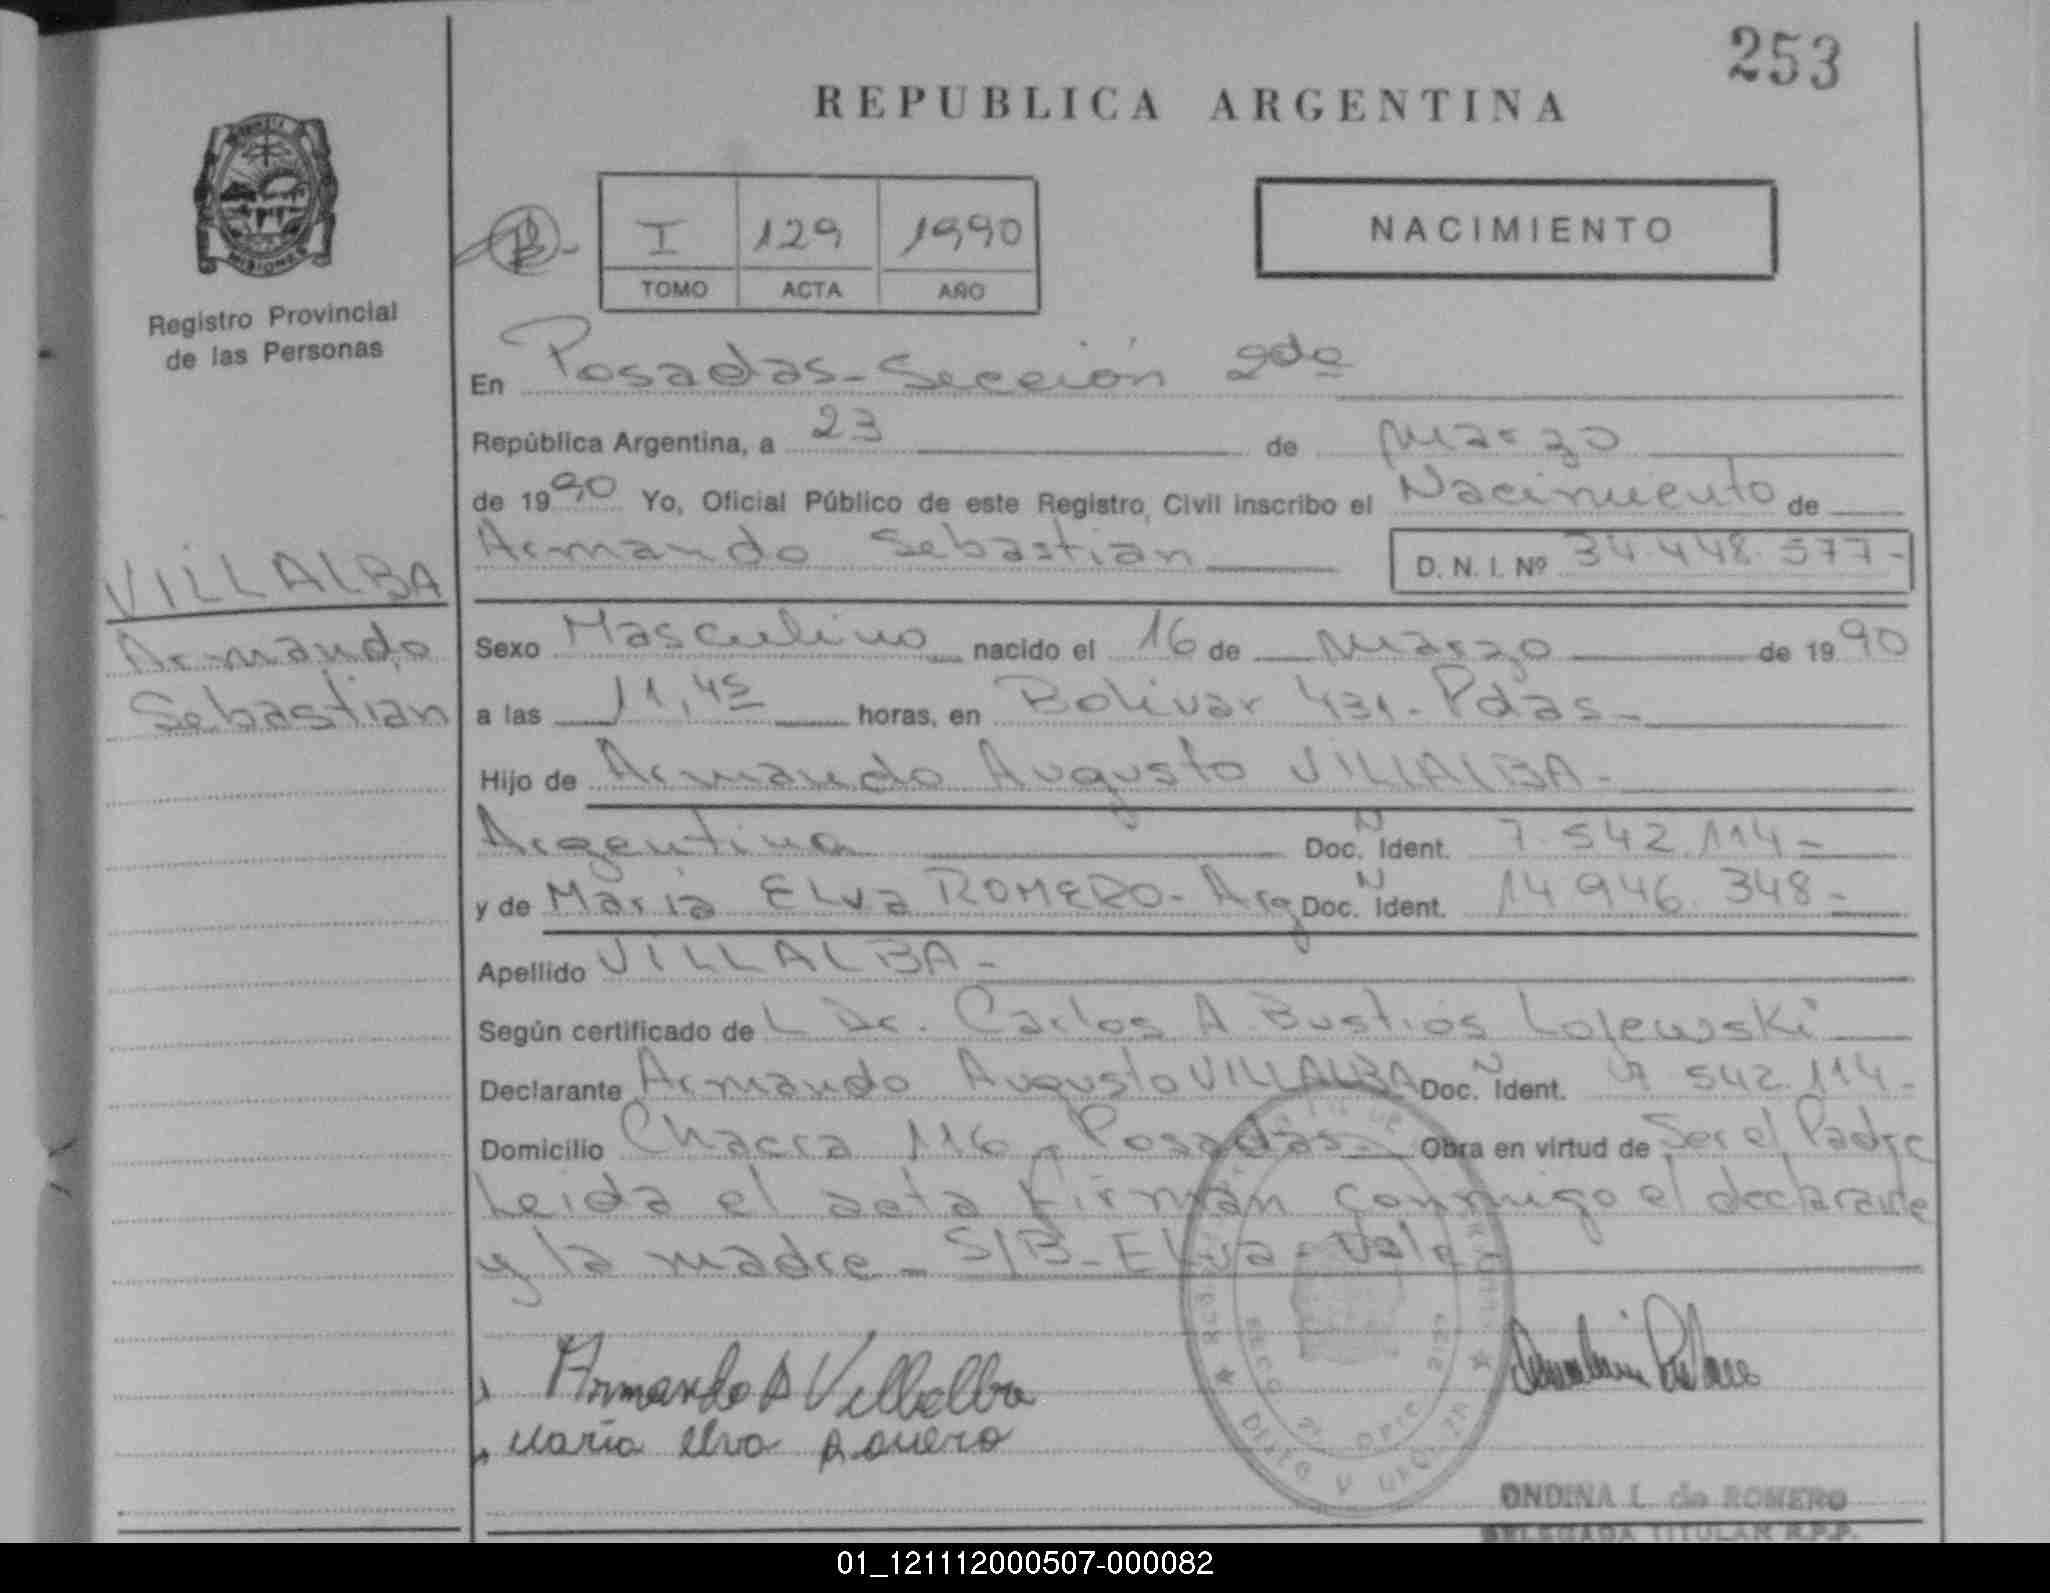 253
REPUBLICA ARGENTINA
MISIONES
Registro Provincial
de las Personas
I 129 1990
TOMO ACTA AÑO
NACIMIENTO
En Posadas - Sección 2da
República Argentina, a 23 de Marzo
de 1990 Yo, Oficial Público de este Registro Civil inscribo el Nacimiento de
Armando Sebastian D. N. I. Nº 34.448.577-
VILLALBA
Armando
Sebastian
Sexo Masculino nacido el 16 de Marzo de 1990
a las 11,45 horas, en Bolivar 431 - Pdas -
Hijo de Armando Augusto VILLALBA -
Argentina Doc. N Ident. 7.542.114 -
y de María Elva ROMERO - Arg Doc. N Ident. 14.946.348 -
Apellido VILLALBA -
Según certificado de L Dr. Carlos A. Bustios Lojewski
Declarante Armando Augusto VILLALBA Doc. N Ident. 7.542.114 -
Domicilio Chacra 116 - Posadas - Obra en virtud de Ser el Padre
Leida el acta firman conmigo el declarante
y la madre - S/B - Elva - Vale
Armando A Villalba
María Elva Romero
ONDINA L. de ROMERO
DELEGADA TITULAR R.P.P.
01_121112000507-000082